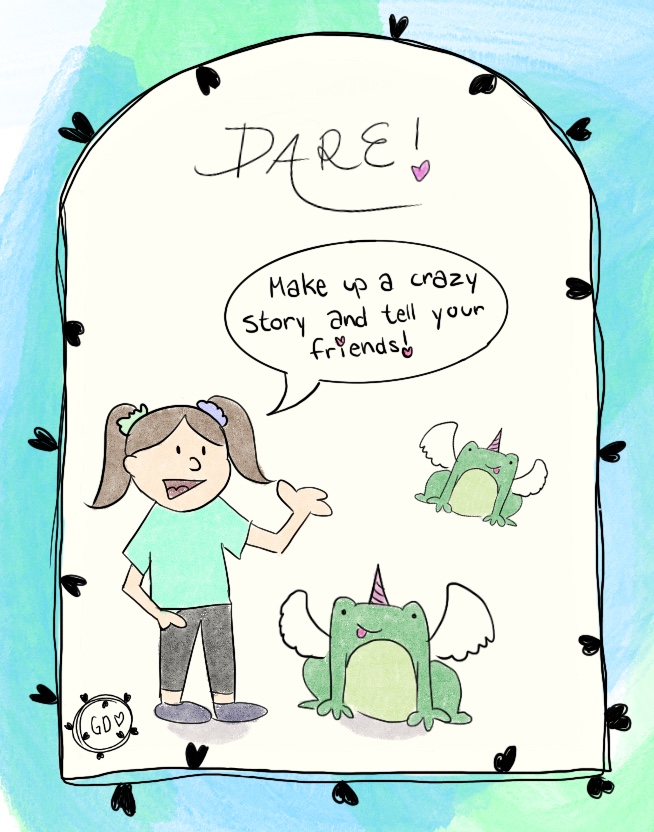 DARE!
Make up a crazy
story and tell your
friends!
GD